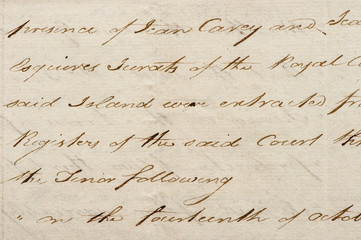 presence of Jean Carey and Jea
Esquires Jurats of the Royal C
said Island were extracted fr
Registers of the said Court the
the Tenor following
" on the fourteenth of octo